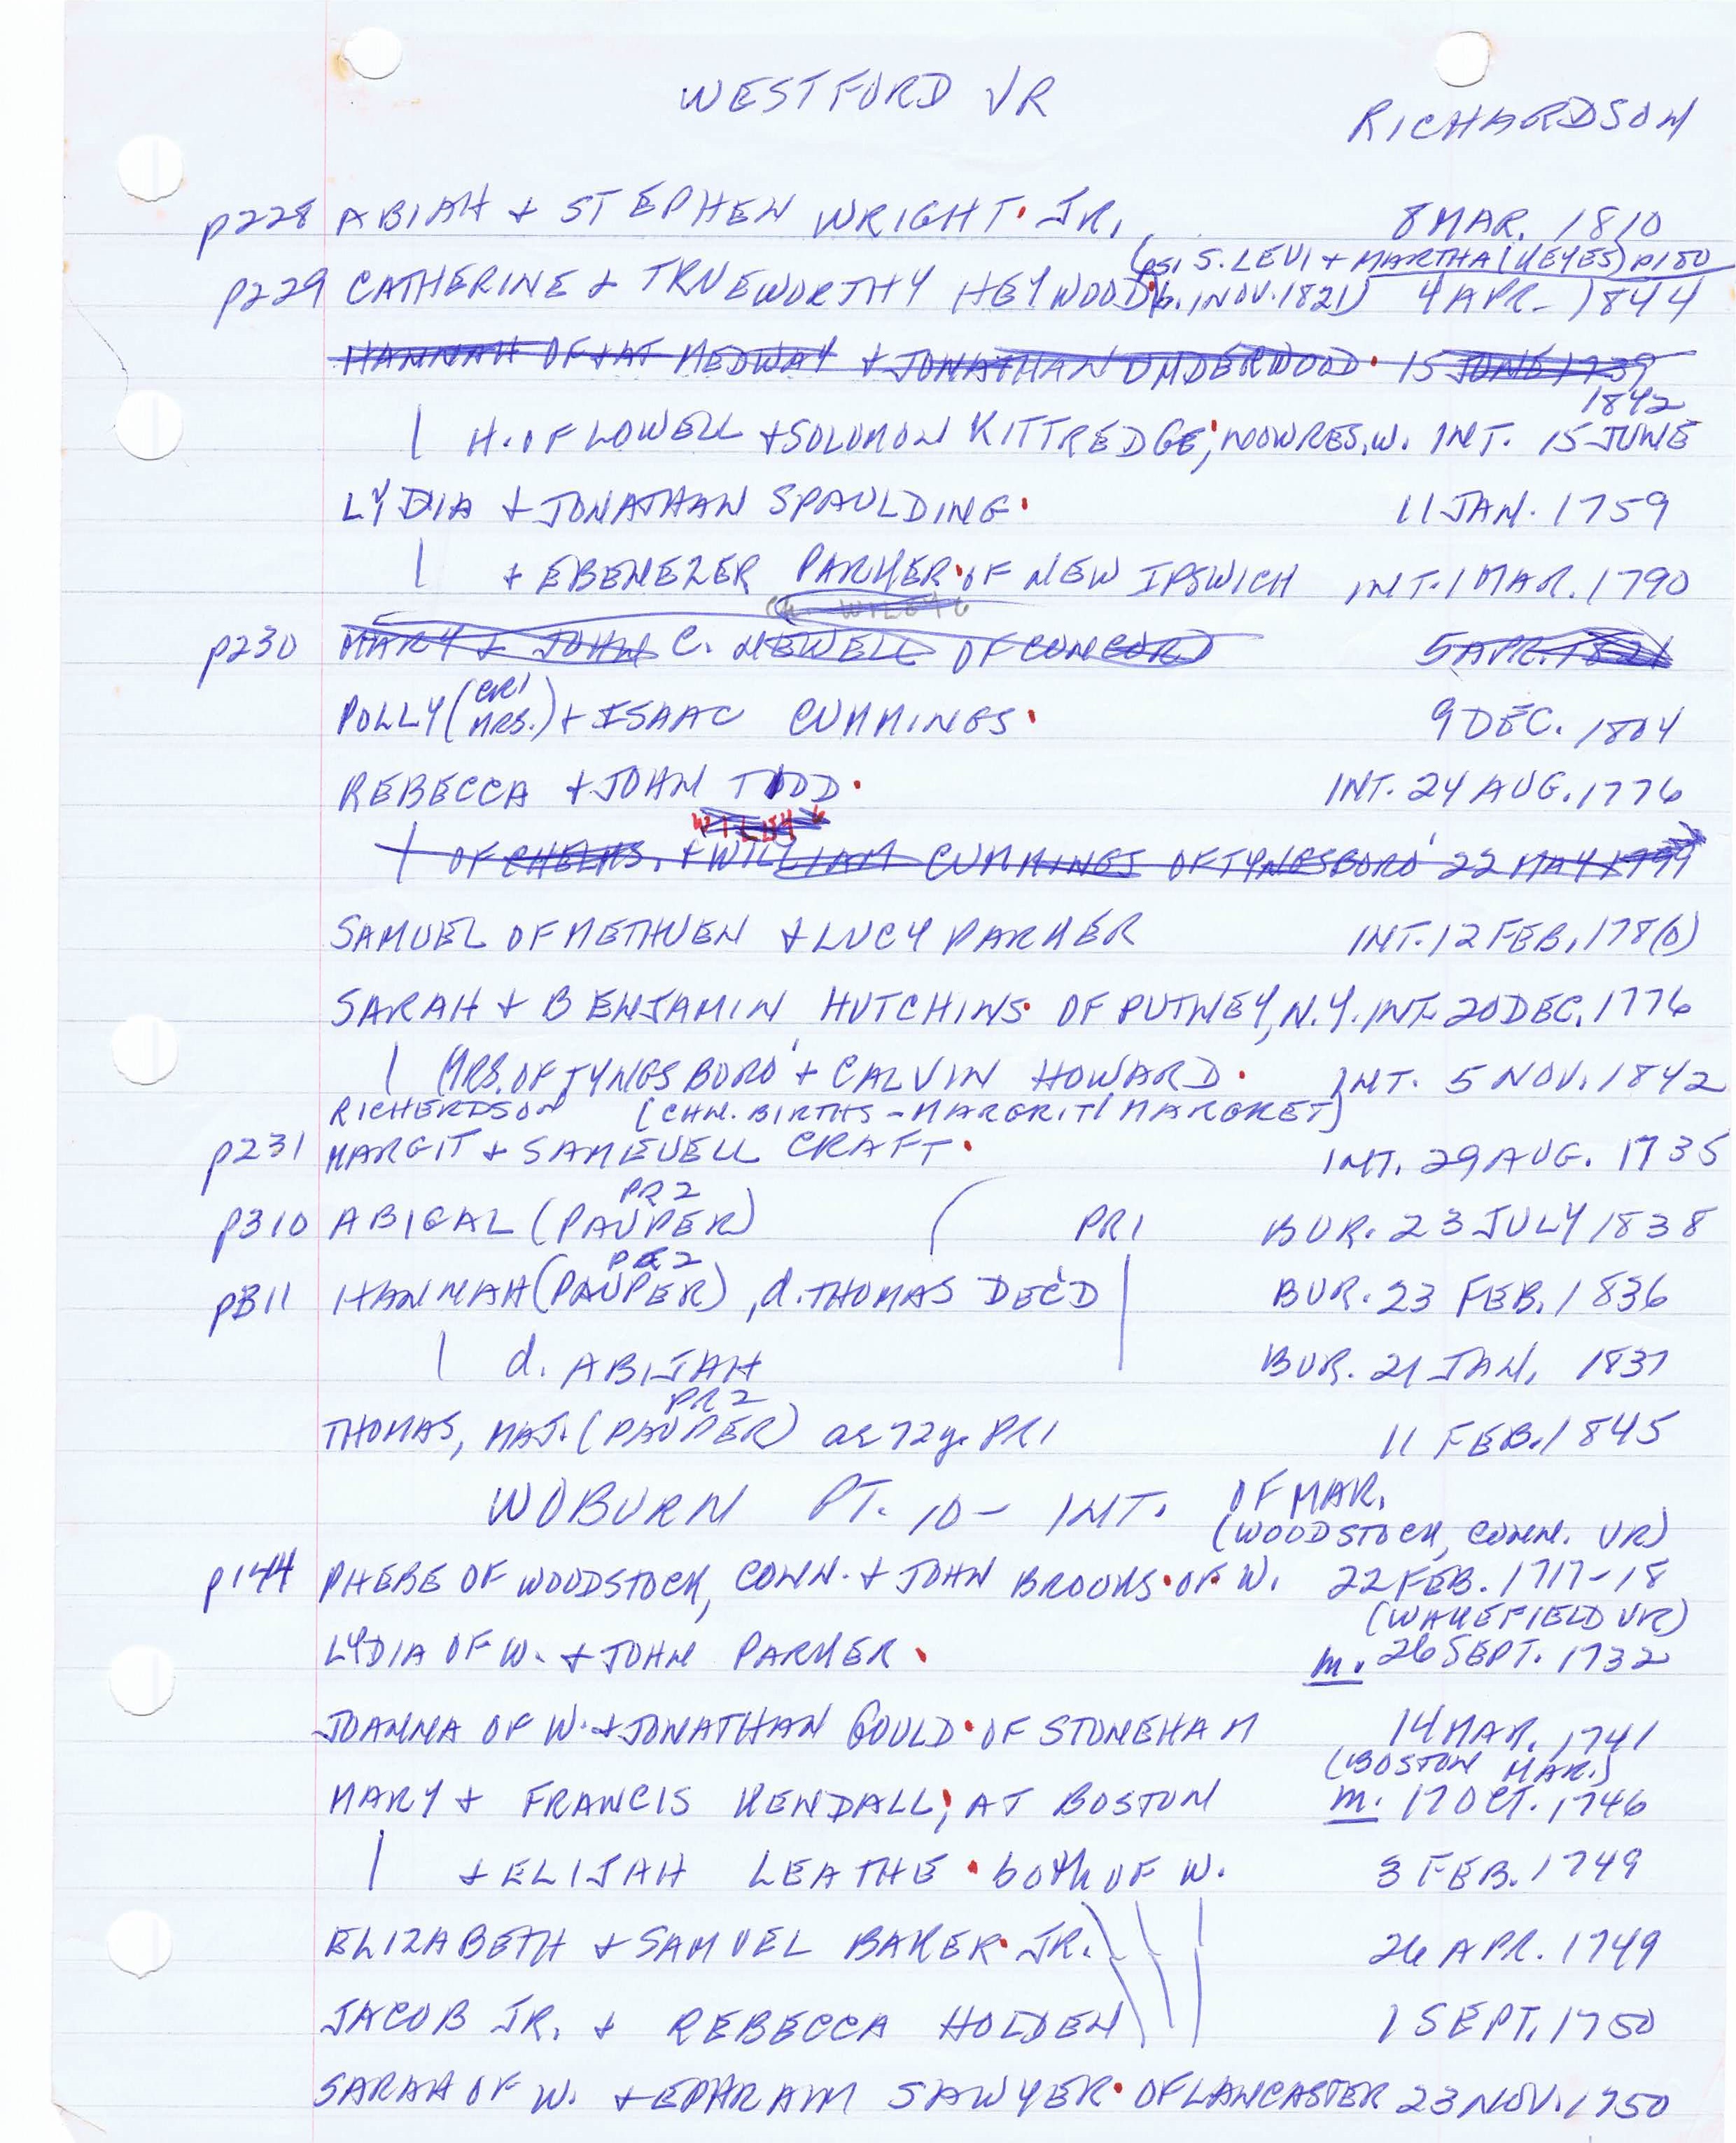 WESTFORD VR
RICHARDSON
p228 ABIAH + STEPHEN WRIGHT. JR. 8 MAR. 1810
(psi S. LEVI + MARTHA (KEYES) p180
p229 CATHERINE + TRUEWORTHY HEYWOOD. (b. 1 NOV. 1821) 4 APR. 1844
HANNAH OF + AT MEDWAY + JONATHAN UNDERWOOD. 15 JUNE 1739
1842
| H. OF LOWELL + SOLOMON KITTREDGE, NOW RES. W. INT. 15 JUNE
LYDIA + JONATHAN SPAULDING. 11 JAN. 1759
| + EBENEZER PARKER. OF NEW IPSWICH INT. 1 MAR. 1790
p230 MARY + JOHN C. NEWELL OF CONCORD 5 APR. 1821
POLLY (CR1 MRS.) + ISAAC CUMMINGS. 9 DEC. 1804
REBECCA + JOHN TODD. INT. 24 AUG. 1776
| OF CHELMS. + WILLIAM CUMMINGS OF TYNGSBORO' 22 MAY 1799
SAMUEL OF METHUEN + LUCY PARKER INT. 12 FEB. 178(0)
SARAH + BENJAMIN HUTCHINS. OF PUTNEY, N.Y. INT. 20 DEC. 1776
| MRS. OF TYNGSBORO' + CALVIN HOWARD. INT. 5 NOV. 1842
RICHERDSON (CHN. BIRTHS - MARGRIT / MARGRET)
p231 MARGIT + SAMEUELL CRAFT. INT. 29 AUG. 1735
PR2
p310 ABIGAL (PAUPER) ( PR1 BUR. 23 JULY 1838
PR2
p311 HANNAH (PAUPER), d. THOMAS DEC'D | BUR. 23 FEB. 1836
| d. ABIJAH BUR. 21 JAN. 1837
PR2
THOMAS, MAJ. (PAUPER) ae 72 y. PR1 11 FEB. 1845
WOBURN PT. 10 - INT. OF MAR.
(WOODSTOCK, CONN. VR)
p144 PHEBE OF WOODSTOCK, CONN. + JOHN BROOKS. OF W. 22 FEB. 1717-18
(WAKEFIELD VR)
LYDIA OF W. + JOHN PARKER. m. 26 SEPT. 1732
JOANNA OF W. + JONATHAN GOULD. OF STONEHAM 14 MAR. 1741
(BOSTON MAR.)
MARY + FRANCIS KENDALL, AT BOSTON m. 17 OCT. 1746
| + ELIJAH LEATHE. both OF W. 3 FEB. 1749
ELIZABETH + SAMUEL BAKER. JR. 26 APR. 1749
JACOB JR. + REBECCA HOLDEN 1 SEPT. 1750
SARAH OF W. + EPHRAIM SAWYER. OF LANCASTER 23 NOV. 1750